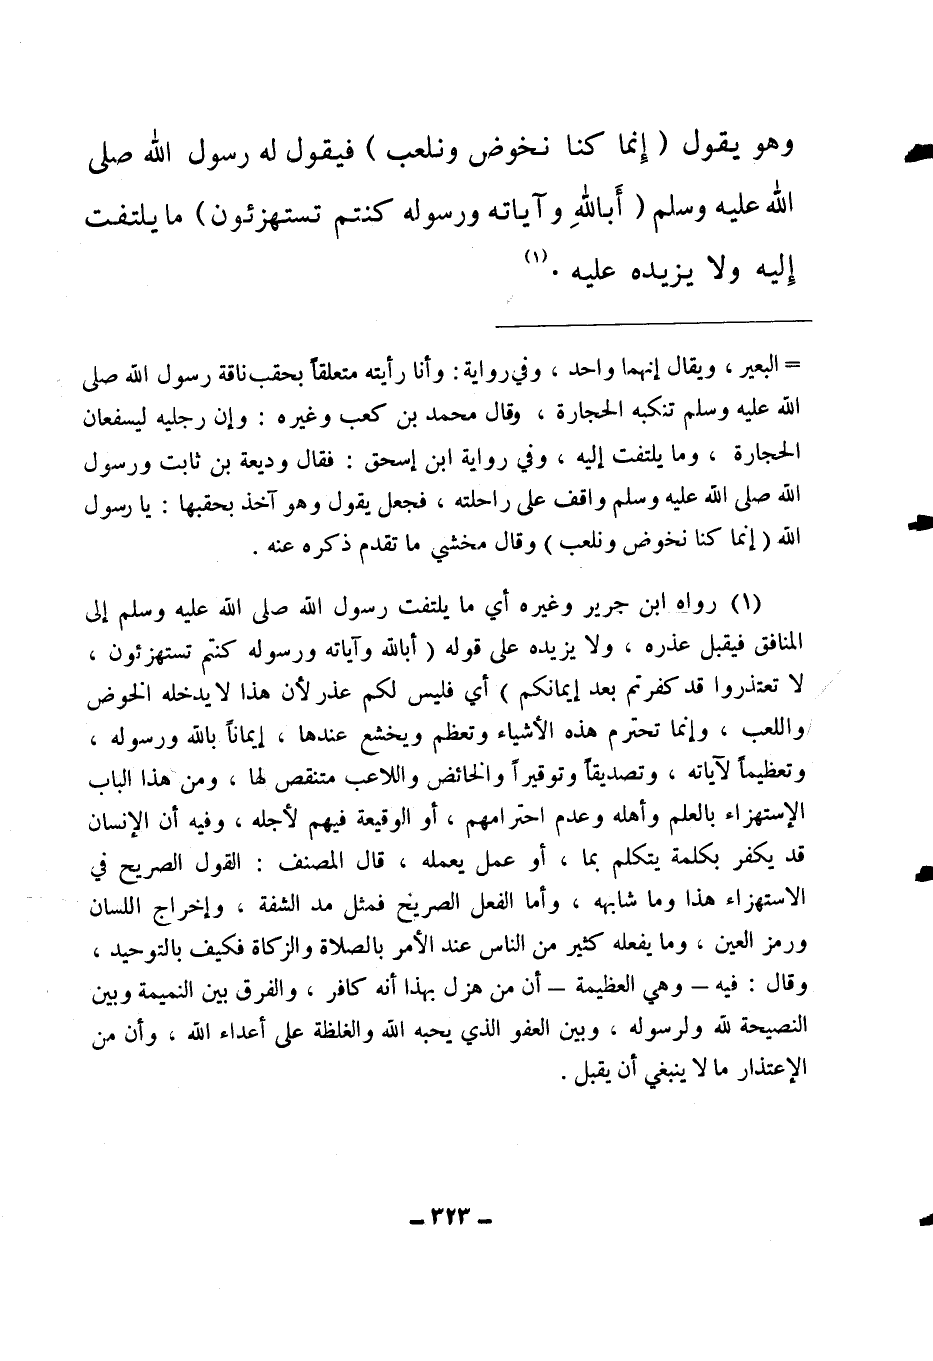 وهو يقول ( إنما كنا نخوض ونلعب ) فيقول له رسول الله صلى
الله عليه وسلم ( أَبالله وآياته ورسوله كنتم تستهزئون ) ما يلتفت
إليه ولا يزيده عليه . (١)
= البعير ، ويقال إنهما واحد ، وفي رواية : وأنا رأيته متعلقاً بحقب ناقة رسول الله صلى
الله عليه وسلم تنكبه الحجارة ، وقال محمد بن كعب وغيره : وإن رجليه ليسفعان
الحجارة ، وما يلتفت إليه ، وفي رواية ابن إسحق : فقال وديعة بن ثابت ورسول
الله صلى الله عليه وسلم واقف على راحلته ، فجعل يقول وهو آخذ بحقبها : يا رسول
الله ( إنما كنا نخوض ونلعب ) وقال مخشي ما تقدم ذكره عنه .
(١) رواه ابن جرير وغيره أي ما يلتفت رسول الله صلى الله عليه وسلم إلى
المنافق فيقبل عذره ، ولا يزيده على قوله ( أبالله وآياته ورسوله كنتم تستهزئون ،
لا تعتذروا قد كفرتم بعد إيمانكم ) أي فليس لكم عذر لأن هذا لا يدخله الخوض
واللعب ، وإنما تحترم هذه الأشياء وتعظم ويخشع عندها ، إيماناً بالله ورسوله ،
وتعظيماً لآياته ، وتصديقاً وتوقيراً والخائض واللاعب متنقص لها ، ومن هذا الباب
الإستهزاء بالعلم وأهله وعدم احترامهم ، أو الوقيعة فيهم لأجله ، وفيه أن الإنسان
قد يكفر بكلمة يتكلم بها ، أو عمل يعمله ، قال المصنف : القول الصريح في
الاستهزاء هذا وما شابهه ، وأما الفعل الصريح فمثل مد الشفة ، وإخراج اللسان
ورمز العين ، وما يفعله كثير من الناس عند الأمر بالصلاة والزكاة فكيف بالتوحيد ،
وقال : فيه – وهي العظيمة – أن من هزل بهذا أنه كافر ، والفرق بين النميمة وبين
النصيحة لله ولرسوله ، وبين العفو الذي يحبه الله والغلظة على أعداء الله ، وأن من
الإعتذار ما لا ينبغي أن يقبل .
– ٣٢٣ –